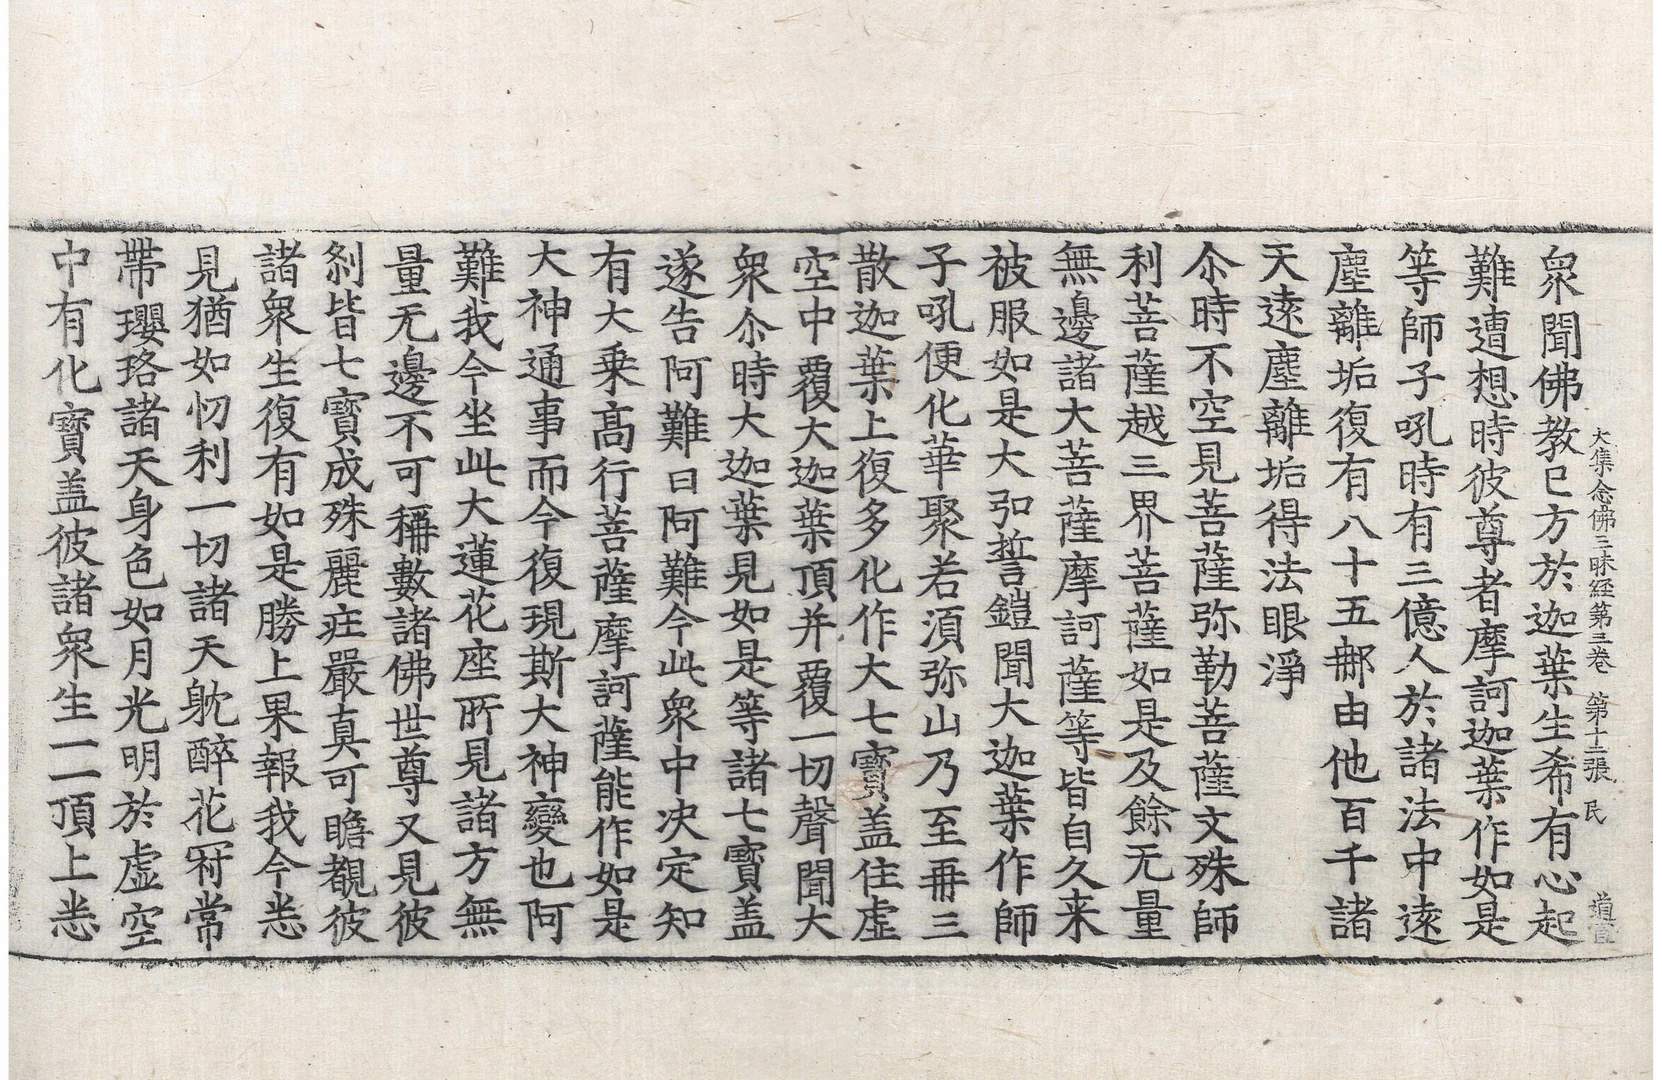 大集念佛三昧経第三巻　第十二張　民
衆聞佛教已方於迦葉生希有心起
難遭想時彼尊者摩訶迦葉作如是
等師子吼時有三億人於諸法中遠
塵離垢復有八十五那由他百千諸
天遠塵離垢得法眼淨
尒時不空見菩薩弥勒菩薩文殊師
利菩薩越三界菩薩如是及餘无量
無邊諸大菩薩摩訶薩等皆自久来
被服如是大弘誓鎧聞大迦葉作師
子吼便化華聚若湏弥山乃至冊三
散迦葉上復多化作大七寳盖住虚
空中覆大迦葉頂并覆一切聲聞大
衆尒時大迦葉見如是等諸七寳盖
遂告阿難曰阿難今此衆中决定知
有大乗髙行菩薩摩訶薩能作如是
大神通事而今復現斯大神變也阿
難我今坐此大蓮花座所見諸方無
量无邊不可稱數諸佛世尊又見彼
刹皆七寳成殊麗㽵嚴真可瞻覩彼
諸衆生復有如是勝上果報我今悉
見猶如忉利一切諸天躭醉花冠常
帶瓔珞諸天身色如月光明於虚空
中有化寳盖彼諸衆生一一頂上悉